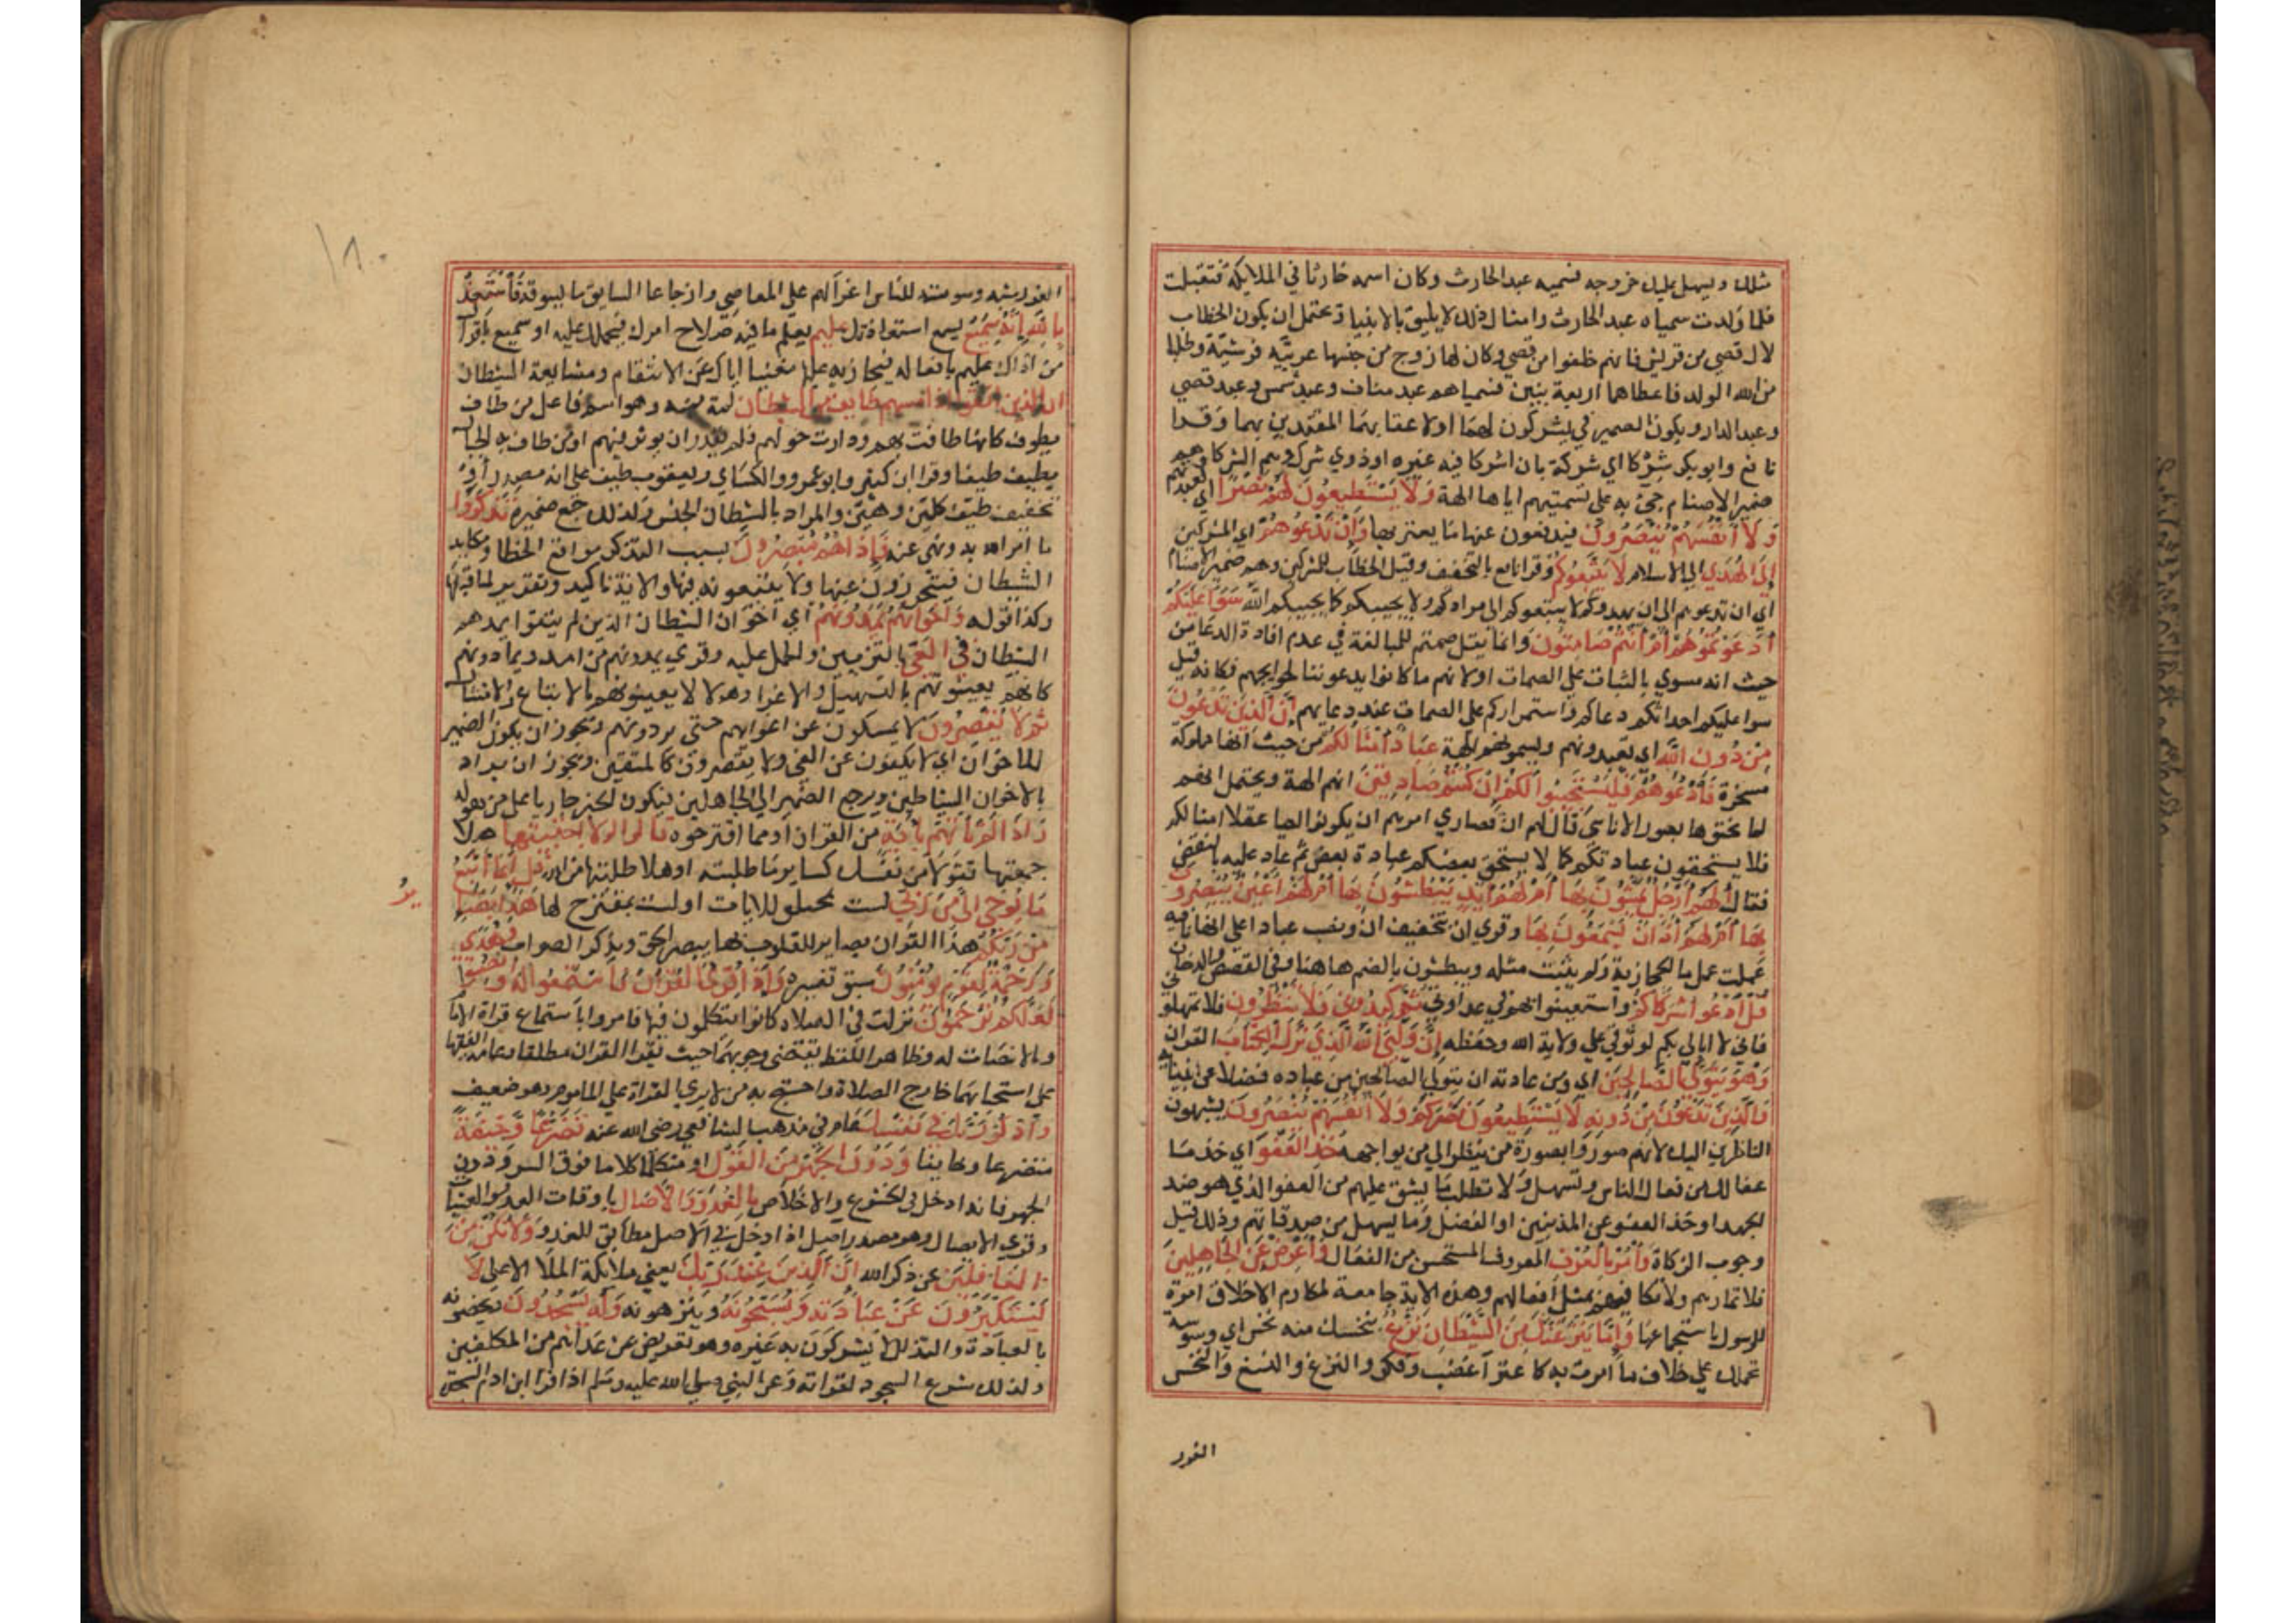 مثلك ويسهل عليك خروجه فسميه عبد الحارث وكان اسمه حارثا في الملايكة فتقبلت
فلما ولدت سمياه عبد الحارث وامثال ذلك لا يليق بالانبياء ويحتمل ان يكون الخطاب
لال قصي من قريش فانهم خلقوا من قصي وكان لها زوج من جنسها عربية قرشية وطلبا
من الله الولد فاعطاهما اربعة بنين فسمياهم عبد مناف وعبد شمس وعبد قصي
وعبد الدار ويكون الضمير في يشركون لهما ولاعقابهما المقتدين بهما وقرا
نافع وابو بكر شركا اي شركة بان اشركا فيه غيره او ذوي شرك وهم الشركا وهم
ضمير الاصنام جيء به على تسميتهم اياها الهة وَلَا يَسْتَطِيعُونَ لَهُمْ نَصْرًا اي لعبدتهم
وَلَا أَنْفُسَهُمْ يَنْصُرُونَ فيدفعون عنها ما يعتريها وَإِنْ تَدْعُوهُمْ اي المشركين
إِلَى الْهُدَي الى الاسلام لَا يَتَّبِعُوكُمْ وقرا نافع بالتخفيف وقيل الخطاب للمشركين وهم ضمير الاصنام
اي ان تدعوهم الى ان يهدوكم لا يتبعوكم الى مرادكم ولا يجيبكم كما يجيبكم الله سَوَاءٌ عَلَيْكُمْ
أَدَعَوْتُمُوهُمْ أَمْ أَنْتُمْ صَامِتُونَ وانما لم يقل صمتم للمبالغة في عدم افادة الدعا من
حيث انه مسوي بالثبات على الصمات او لانهم ما كانوا يدعوننا لحوايجهم فكانه قيل
سوا عليكم احداثكم دعاكم واستمراركم على الصمات عند دعايهم إِنَّ الَّذِينَ تَدْعُونَ
مِنْ دُونِ اللَّهِ اي تعبدونهم وتسمونهم الهة عِبَادٌ أَمْثَالُكُمْ من حيث انها مملوكة
مسخرة فَادْعُوهُمْ فَلْيَسْتَجِيبُوا لَكُمْ إِنْ كُنْتُمْ صَادِقِينَ انهم الهة ويحتمل انهم
لما نحتوها بصور الاناسي قال لهم ان قصاري امرهم ان يكونوا احيا عقلا امثالكم
فلا يستحقون عبادتكم كما لا يستحق بعضكم عبادة بعض ثم عاد عليه بالنقض
فقال أَلَهُمْ أَرْجُلٌ يَمْشُونَ بِهَا أَمْ لَهُمْ أَيْدٍ يَبْطِشُونَ بِهَا أَمْ لَهُمْ أَعْيُنٌ يُبْصِرُونَ
بِهَا أَمْ لَهُمْ آذَانٌ يَسْمَعُونَ بِهَا وقري ان بتخفيف ان ونصب عبادا على انها نافيه
عملت عمل ما الحجازية ولم يثبت مثله ويبطشون بالضم هاهنا وفي القصص والدخان
قُلِ ادْعُوا شُرَكَاءَكُمْ واستعينوا بهم في عداوتي ثُمَّ كِيدُونِ فَلَا تُنْظِرُونِ فلا تمهلوني
فاني لا ابالي بكم لوثوقي على ولاية الله وحفظه إِنَّ وَلِيِّيَ اللَّهُ الَّذِي نَزَّلَ الْكِتَابَ القران
وَهُوَ يَتَوَلَّى الصَّالِحِينَ اي ومن عادته ان يتولى الصالحين من عباده فضلا عن انبيائه
وَالَّذِينَ تَدْعُونَ مِنْ دُونِهِ لَا يَسْتَطِيعُونَ نَصْرَكُمْ وَلَا أَنْفُسَهُمْ يَنْصُرُونَ يشبهون
الناظرين اليك لانهم صوروا بصورة من ينظر الي من يواجهه خُذِ الْعَفْوَ اي خذ ما
عفا لك من فعال الناس وتسهل ولا تطلب ما يشق عليهم من العفو الذي هو ضد
الجهد او خذ العفو عن المذنبين او الفضل وما يسهل من صدقاتهم وذلك قبل
وجوب الزكاة وَأْمُرْ بِالْعُرْفِ المعروف المستحسن من الفعال وَأَعْرِضْ عَنِ الْجَاهِلِينَ
فلا تمارهم ولا تكافهم بمثل افعالهم وهذه الاية جامعة لمكارم الاخلاق امرة
للرسول باستجماعها وَإِمَّا يَنْزَغَنَّكَ مِنَ الشَّيْطَانِ نَزْغٌ ينخسك منه نخس اي وسوسة
تحملك على خلاف ما امرت به كاعترا غضب وفكر والنزغ والنسغ والنخس
الغرز
١٨٠
الغرز شبه وسوسته للناس اغرآ لهم على المعاصي وازعاجا السايق ما يسوقه فَاسْتَعِذْ
بِاللَّهِ إِنَّهُ سَمِيعٌ يسمع استعاذتك عَلِيمٌ يعلم ما فيه صلاح امرك فيحملك عليه او سميع باقوال
من اذاك عليم بافعاله فيجازيه عليها مغنيا اياك عن الانتقام ومشايعة الشيطان
ان الذين اتقوا اذا مسهم طايف من الشيطان لمة منه وهو اسم فاعل من طاف
يطوف كانها طافت بهم ودارت حولهم فلم يقدر ان يوثر فيهم او من طاف به الخيال
يطيف طيفا وقرا ابن كثير وابو عمرو والكساي ويعقوب طيف على انه مصدر او
تخفيف طيف كلين وهين والمراد بالشيطان الجنس ولذلك جمع ضميره تَذَكَّرُوا
ما امر الله به ونهى عنه فَإِذَا هُمْ مُبْصِرُونَ بسبب التذكر مواقع الخطا ومكايد
الشيطان فيتحرزون عنها ولا يتبعونه فيها والاية تاكيد وتقرير لما قبلها
وكذا قوله وَإِخْوَانُهُمْ يَمُدُّونَهُمْ اي اخوان الشيطان الذين لم يتقوا يمدهم
الشيطان فِي الْغَيِّ بالتزيين والحمل عليه وقري يمدونهم من امد ويمادونهم
كانهم يعينونهم بالتسهيل والاغرا وهولا لا يعينونهم بالاتباع والامتثال
ثُمَّ لَا يُقْصِرُونَ لا يمسكون عن اغوايهم حتى يردونهم ويجوز ان يكون الضمير
للاخوان اي لا يكفون عن الغي ولا يقصرون كالمتقين ويجوز ان يراد
بالاخوان الشياطين ويرجع الضمير الى الجاهلين فيكون الخبر جاريا على من هو له
وَإِذَا لَمْ تَأْتِهِمْ بِآيَةٍ من القران او مما اقترحوه قَالُوا لَوْلَا اجْتَبَيْتَهَا هلا
جمعتها تقولا من نفسك كساير ما طلبته او هلا طلبتها من الله قُلْ إِنَّمَا أَتَّبِعُ
مَا يُوحَى إِلَيَّ مِنْ رَبِّي لست بمختلق للايات او لست بمقترح لها هَذَا بَصَائِرُ
مِنْ رَبِّكُمْ هذا القران بصاير للقلوب بها يبصر الحق ويدرك الصواب وَهُدًى
وَرَحْمَةٌ لِقَوْمٍ يُؤْمِنُونَ سبق تفسيره وَإِذَا قُرِئَ الْقُرْآنُ فَاسْتَمِعُوا لَهُ وَأَنْصِتُوا
لَعَلَّكُمْ تُرْحَمُونَ نزلت في الصلاة كانوا يتكلمون فيها فامروا باستماع قراة الامام
والانصات له وظاهر اللفظ يقتضي وجوبهما حيث يقرا القران مطلقا وعامة الفقها
على استحبابهما خارج الصلاة واحتج به من لا يري القراة على الماموم وهو ضعيف
وَاذْكُرْ رَبَّكَ فِي نَفْسِكَ في مذهب الشافعي رضي الله عنه تَضَرُّعًا وَخِيفَةً
متضرعا وخايفا وَدُونَ الْجَهْرِ مِنَ الْقَوْلِ او متكلما كلاما فوق السر ودون
الجهر فانه ادخل في الخشوع والاخلاص بِالْغُدُوِّ وَالْآصَالِ باوقات الغدو والعشيات
وقري الايصال وهو مصدر اصل اذا دخل في الاصيل مطابق للغدو وَلَا تَكُنْ مِنَ
الْغَافِلِينَ عن ذكر الله إِنَّ الَّذِينَ عِنْدَ رَبِّكَ يعني ملايكة الملا الاعلى لَا
يَسْتَكْبِرُونَ عَنْ عِبَادَتِهِ وَيُسَبِّحُونَهُ وينزهونه وَلَهُ يَسْجُدُونَ يخصونه
بالعبادة والتذلل لا يشركون به غيره وهو تعريض عن عداهم من المكلفين
ولذلك شرع السجود لقراته وعن النبي صلى الله عليه وسلم اذا قرا ابن ادم السجدة